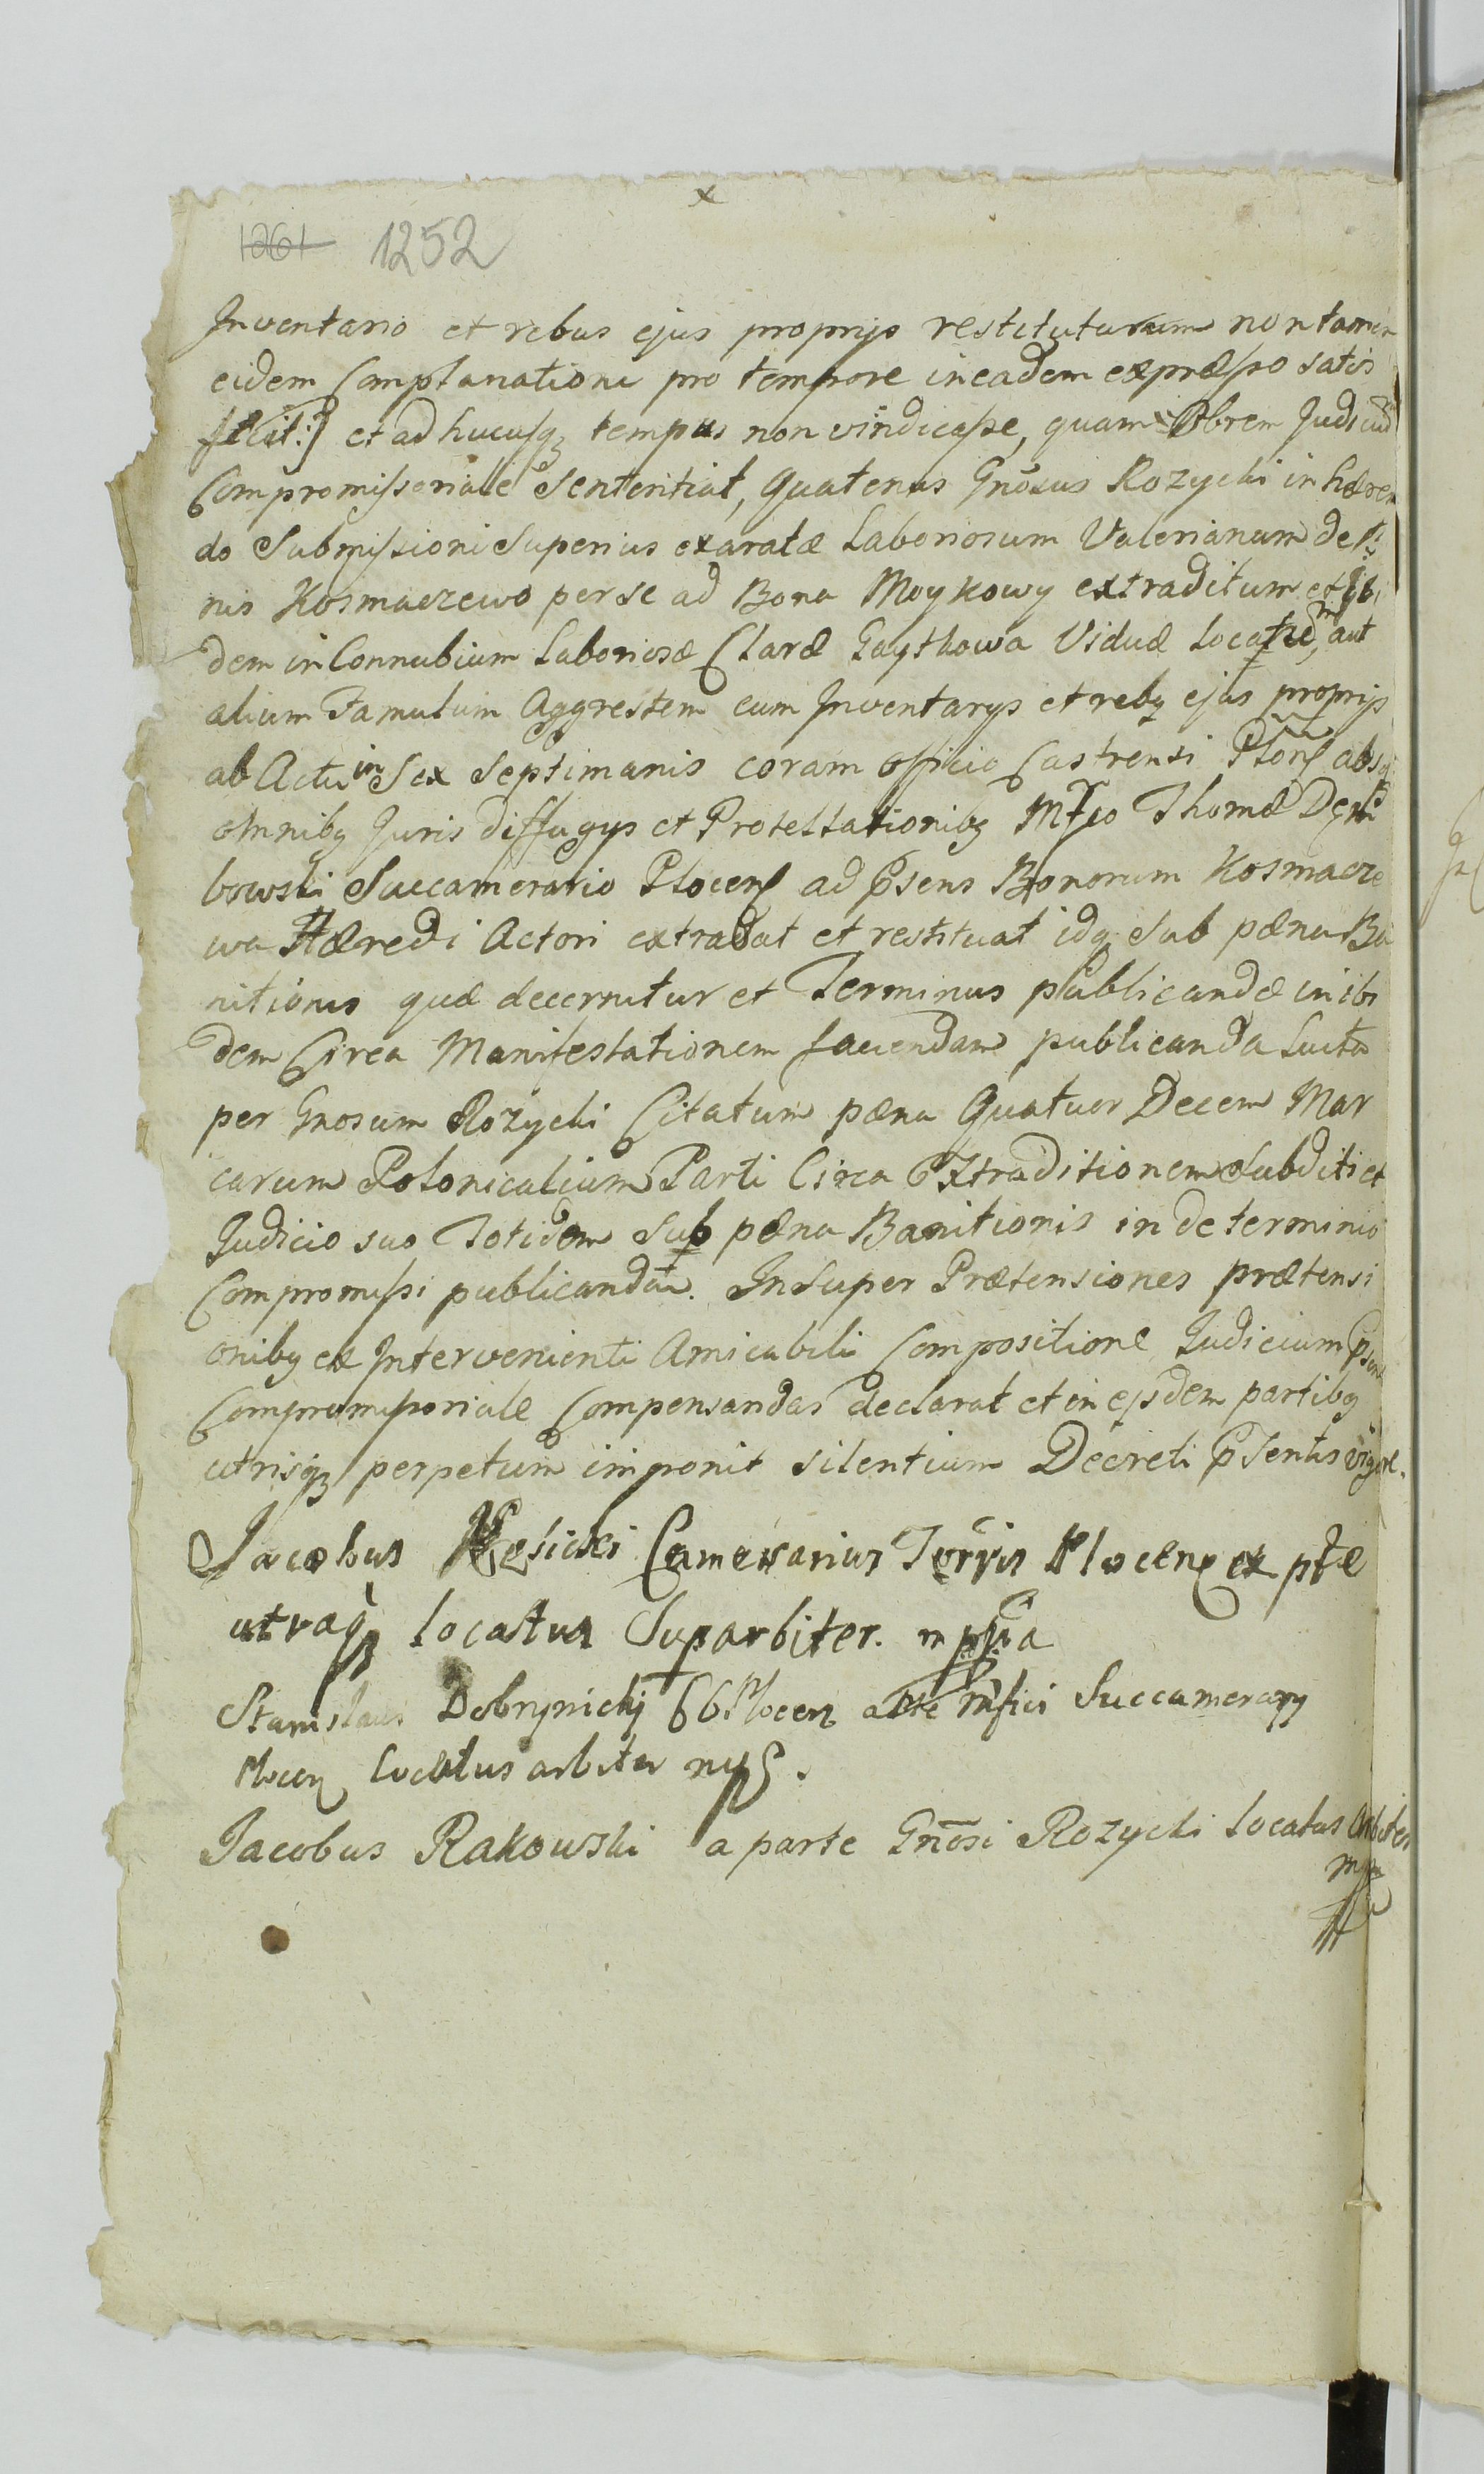 x
1261 1252
Inventario et rebus ejus proprijs restituturum non tamen
eidem Complanationi pro tempore in eadem expræsso satis
fecit:] et ad hucusq3 tempus non vindicasse, quam Obrem Judicium
Compromissoriale Sententiat, Quatenus Gnosus Rozycki in hæren
do Submissioni Superius exaratæ Laboriosum Valerianum de
nis Kosmaczewo per se ad Bona Moykowy extraditum et Ibi
dem in Connubium Laboriosæ Claræ Gaythowa Viduæ Locatum, aut
alium Famulum Aggrestem cum Inventarys et rebq ejus proprijs
ab Actu in Sex Septimanis coram officio Castrensi Plocens absq
omnibq Juris diffugys et Protestationibq Mfco Thomæ Dem
bowski Succamerario Plocens ad Psens Bonorum Kosmacze
wa Hæredi Actori extradat et restituat idq Sub pæna Ba
nitionis quæ decernitur et Terminus publicandæ in ibi
dem Circa Manifestationem faciendam publicanda Luita
per Gnosum Rozycki Citatum pæna Quatuor Decem Mar
carum Polonicalium Parti Circa Extraditionem Subditi et
Judicio suo Totidem Sub pæna Banitionis in de terminio
Compromissi publicandæ. Insuper Prætensiones prætensi
onibq ex Intervenienti Amicabili Compositione Judicium Psens
Compromissoriale Compensandas declarat et in ejsdem partibq
utrisq3 perpetum imponit silentium Decreti Psentis vigore.
Jacobus Camerarius Terris Plocens ex pte
utraq3 locatus Suparbiter. mppa
Stanislaus Dobrzynicki Plocen a pte Mfici Succamerary
Plocen Locatus arbiter mpp.
Jacobus Rakowski a parte Gnosi Rozycki Locatus Arbiter
mpp